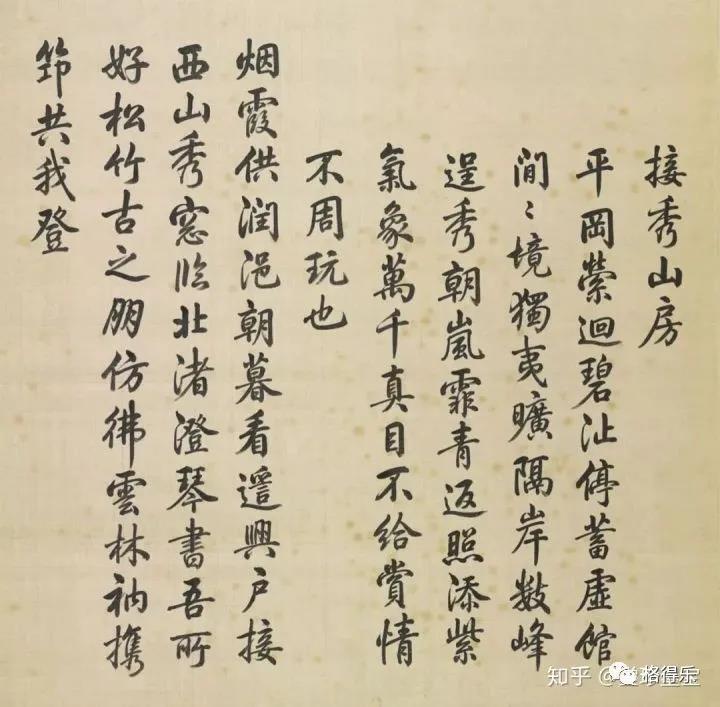 接秀山房
平岡縈迴碧沚停蓄虛館
閒〻境獨夷曠隔岸數峰
逞秀朝嵐霏青返照添紫
氣象萬千真目不給賞情
不周玩也
烟霞供潤浥朝暮看遥興户接
西山秀窓临北渚澄琴書吾所
好松竹古之朋仿彿雲林衲携
筇共我登
知乎 @
格得乐